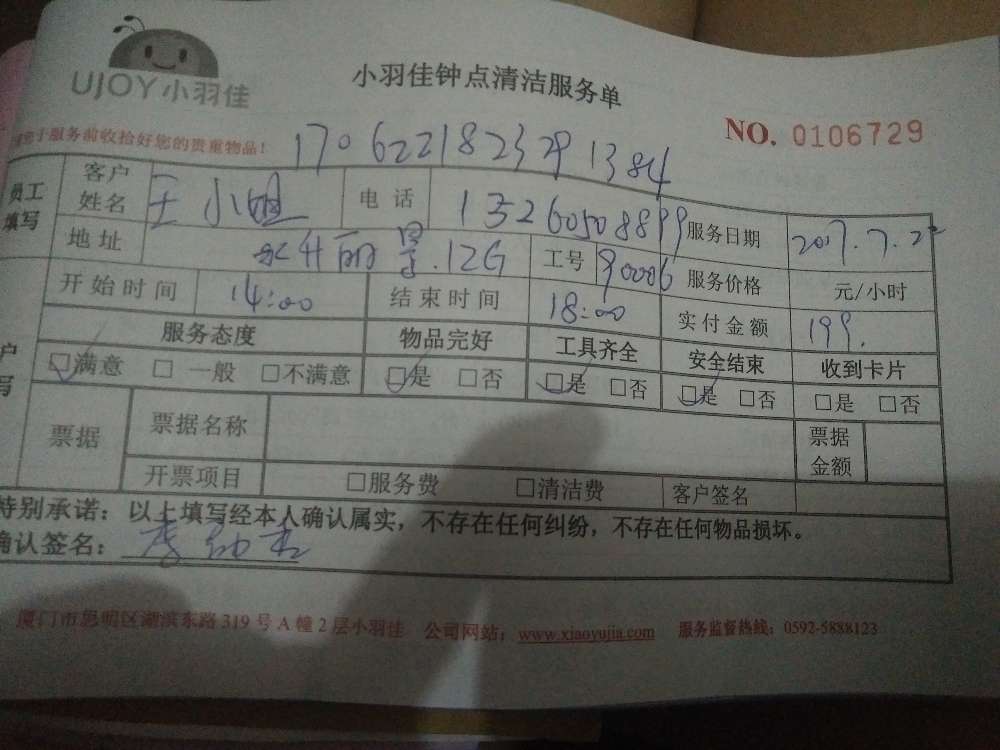 UJOY小羽佳
小羽佳钟点清洁服务单
于服务前收拾好您的贵重物品!
NO. 0106729
1706221823291384
员工填写 客户姓名 王小姐 电话 13260508899 服务日期 2017.7.22
地址 永升丽景.12G 工号 90006 服务价格 元/小时
开始时间 14:00 结束时间 18:00 实付金额 199.
服务态度 物品完好 工具齐全 安全结束 收到卡片
□满意 □一般 □不满意 □是 □否 □是 □否 □是 □否 □是 □否
票据 票据名称 票据金额
开票项目 □服务费 □清洁费 客户签名
特别承诺：以上填写经本人确认属实，不存在任何纠纷，不存在任何物品损坏。
确认签名：
厦门市思明区湖滨东路319号A幢2层小羽佳 公司网站：www.xiaoyujia.com 服务监督热线：0592-5888123